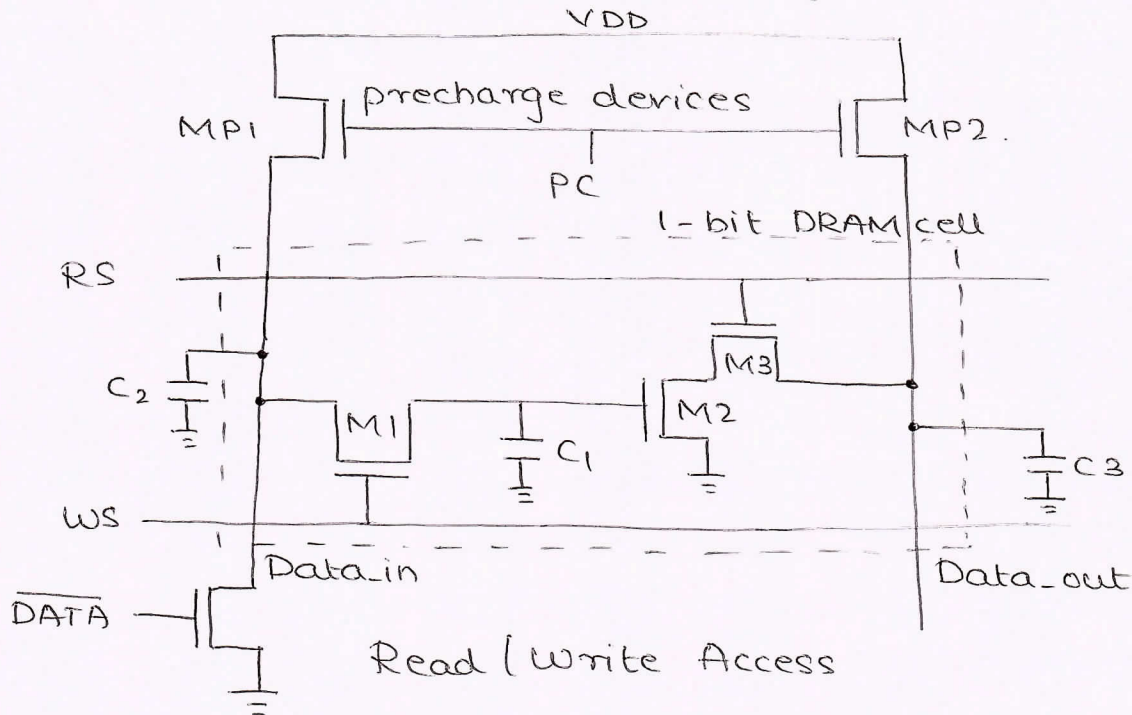 VDD
precharge devices
MP1
MP2.
PC
1-bit DRAM cell
RS
M3
C2
M1
M2
C1
C3
WS
Data_in
Data_out
DATA
Read / Write Access